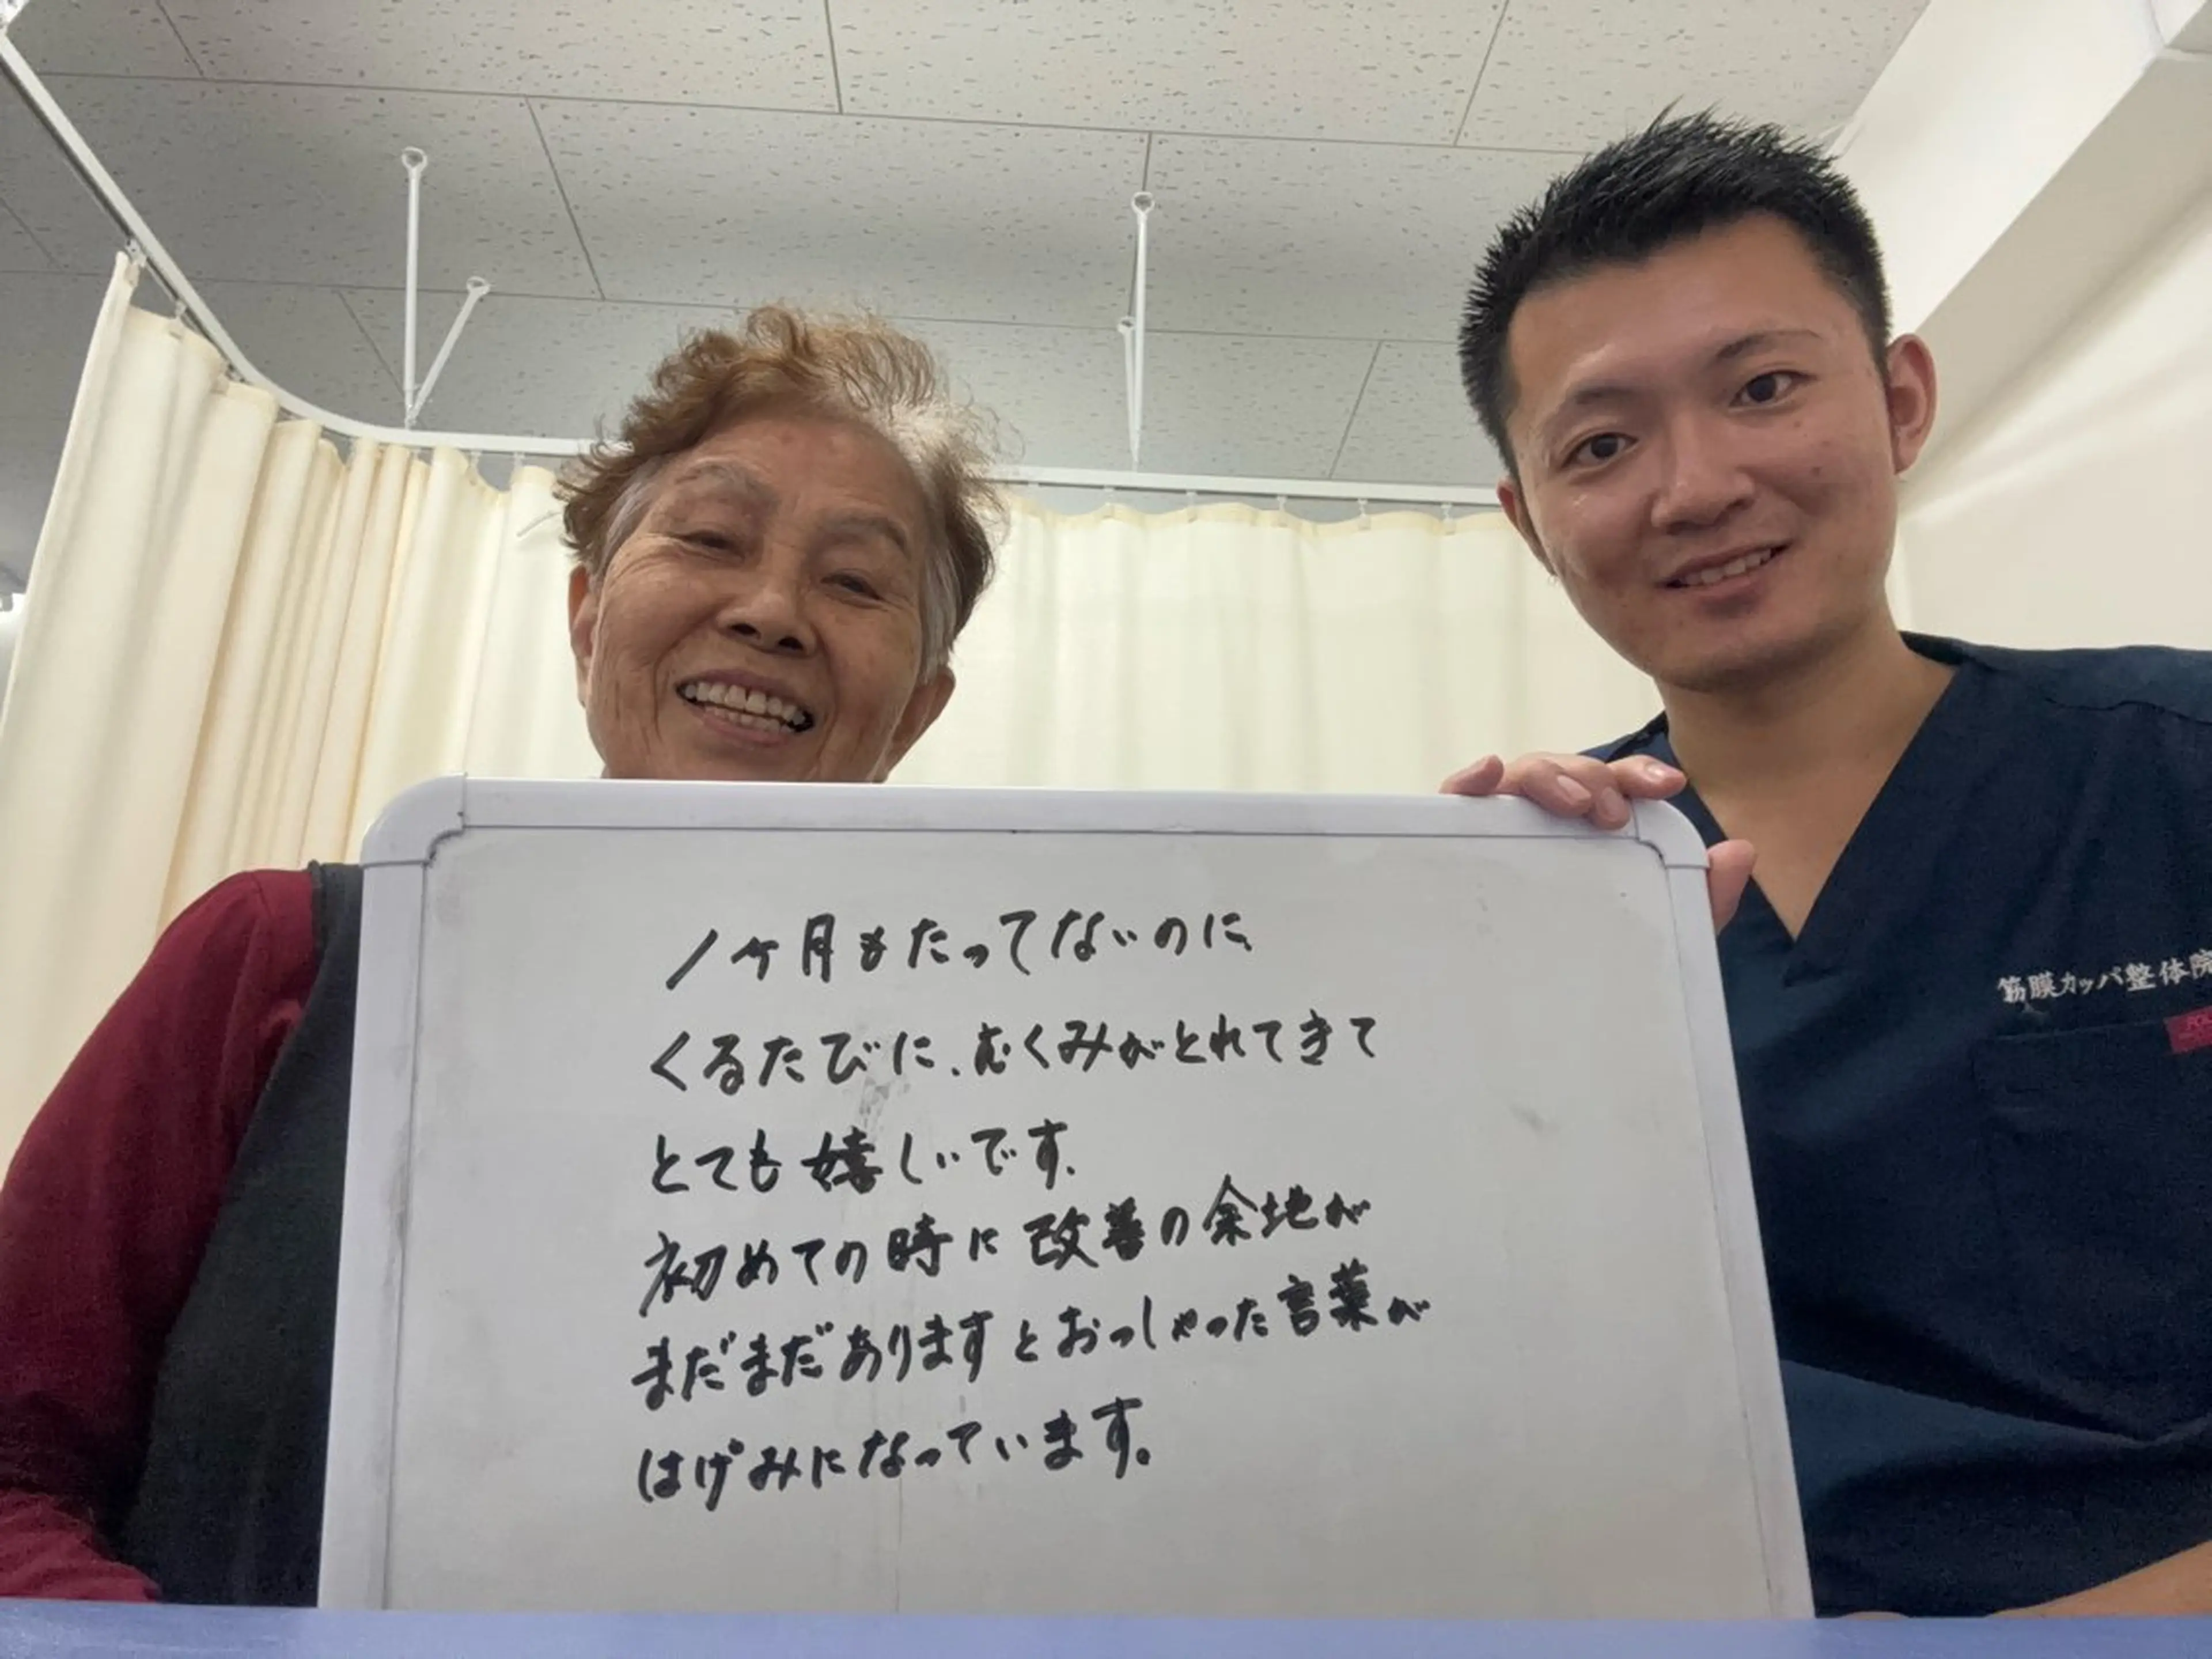 1ヶ月もたってないのに、
くるたびに、むくみがとれてきて
とても嬉しいです。
初めての時に改善の余地が
まだまだありますとおっしゃった言葉が
はげみになっています。
筋膜カッパ整体院